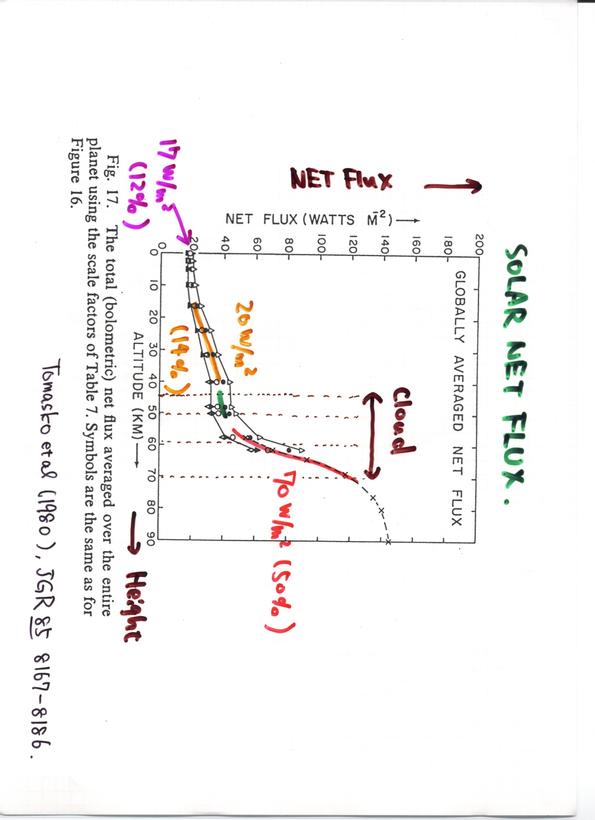 SOLAR NET FLUX.
GLOBALLY AVERAGED NET FLUX
NET Flux →
Cloud
NET FLUX (WATTS M̄²) →
200
180
160
140
120
100
80
60
40
20
0
0 10 20 30 40 50 60 70 80 90
ALTITUDE (KM) →
→ Height
20 W/m²
(14%)
70 W/m² (50%)
17 W/m²
(12%)
Fig. 17. The total (bolometric) net flux averaged over the entire
planet using the scale factors of Table 7. Symbols are the same as for
Figure 16.
Tomasko et al (1980), JGR 85 8167-8186.